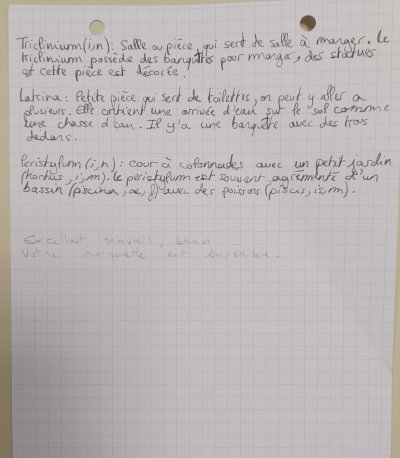 Triclinium (i, n) : Salle ou pièce, qui sert de salle à manger. Le
triclinium possède des banquettes pour manger, des statues
et cette pièce est décorée.
Latrina : Petite pièce qui sert de toilettes, on peut y aller à
plusieurs. Elle contient une arrivée d'eau sur le sol comme
une chasse d'eau. Il y'a une banquette avec des trous
dedans.
Peristylum (i, n) : cour à colonnades avec un petit jardin
(hortus, i, m). Le peristylum est souvent agrémenté d'un
bassin (piscina, ae, f) avec des poissons (piscis, is, m).
Excellent travail, bravo
Votre maquette est superbe.